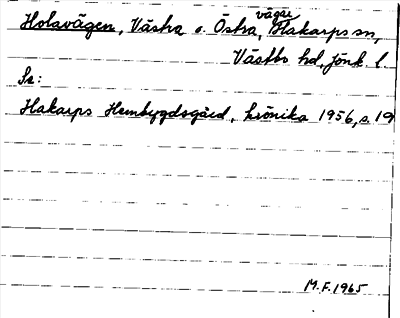 Holavägen, Västra o. Östra, vägar, Hakarps sn,
Västbo hd, Jönk. l.
Se:
Hakarps Hembygdsgård, krönika 1956, s. 19
M.F. 1965